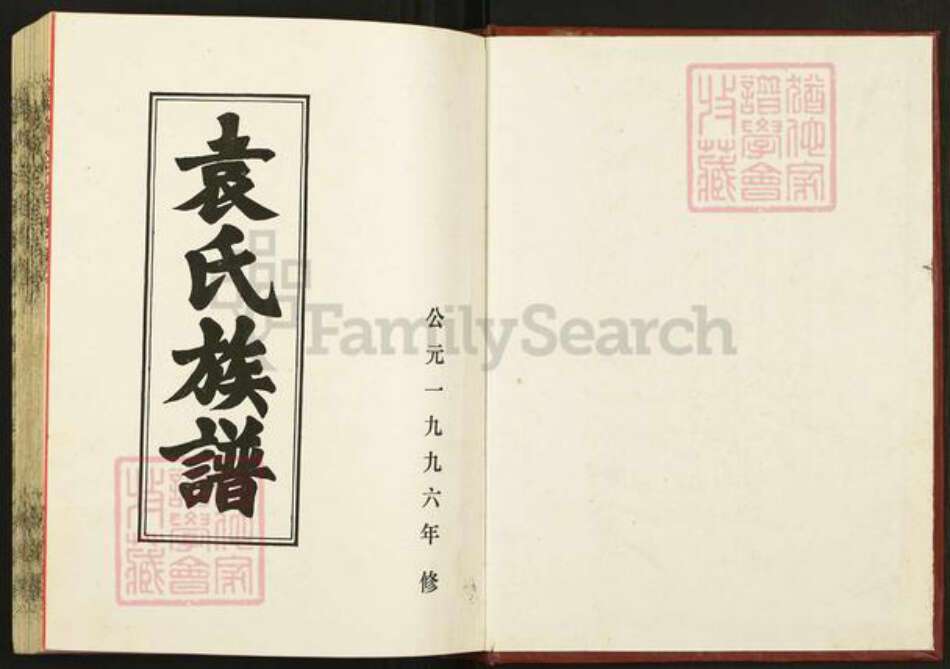 猶他家
譜學會
收藏
公元一九九六年修
袁氏族譜
FamilySearch
猶他家
譜學會
收藏